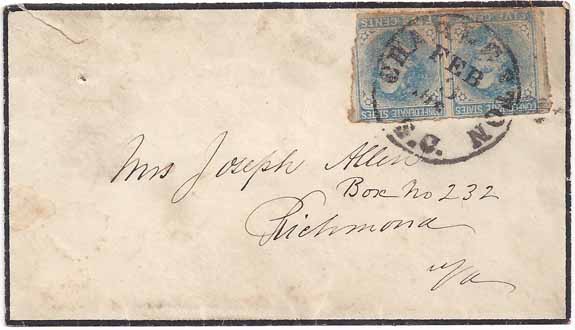 FIVE CENTS FIVE CENTS
CONFEDERATE STATES CONFEDERATE STATES
CHARLESTON
FEB
S.C.
Mrs Joseph Allen
Box No 232
Richmond
Va